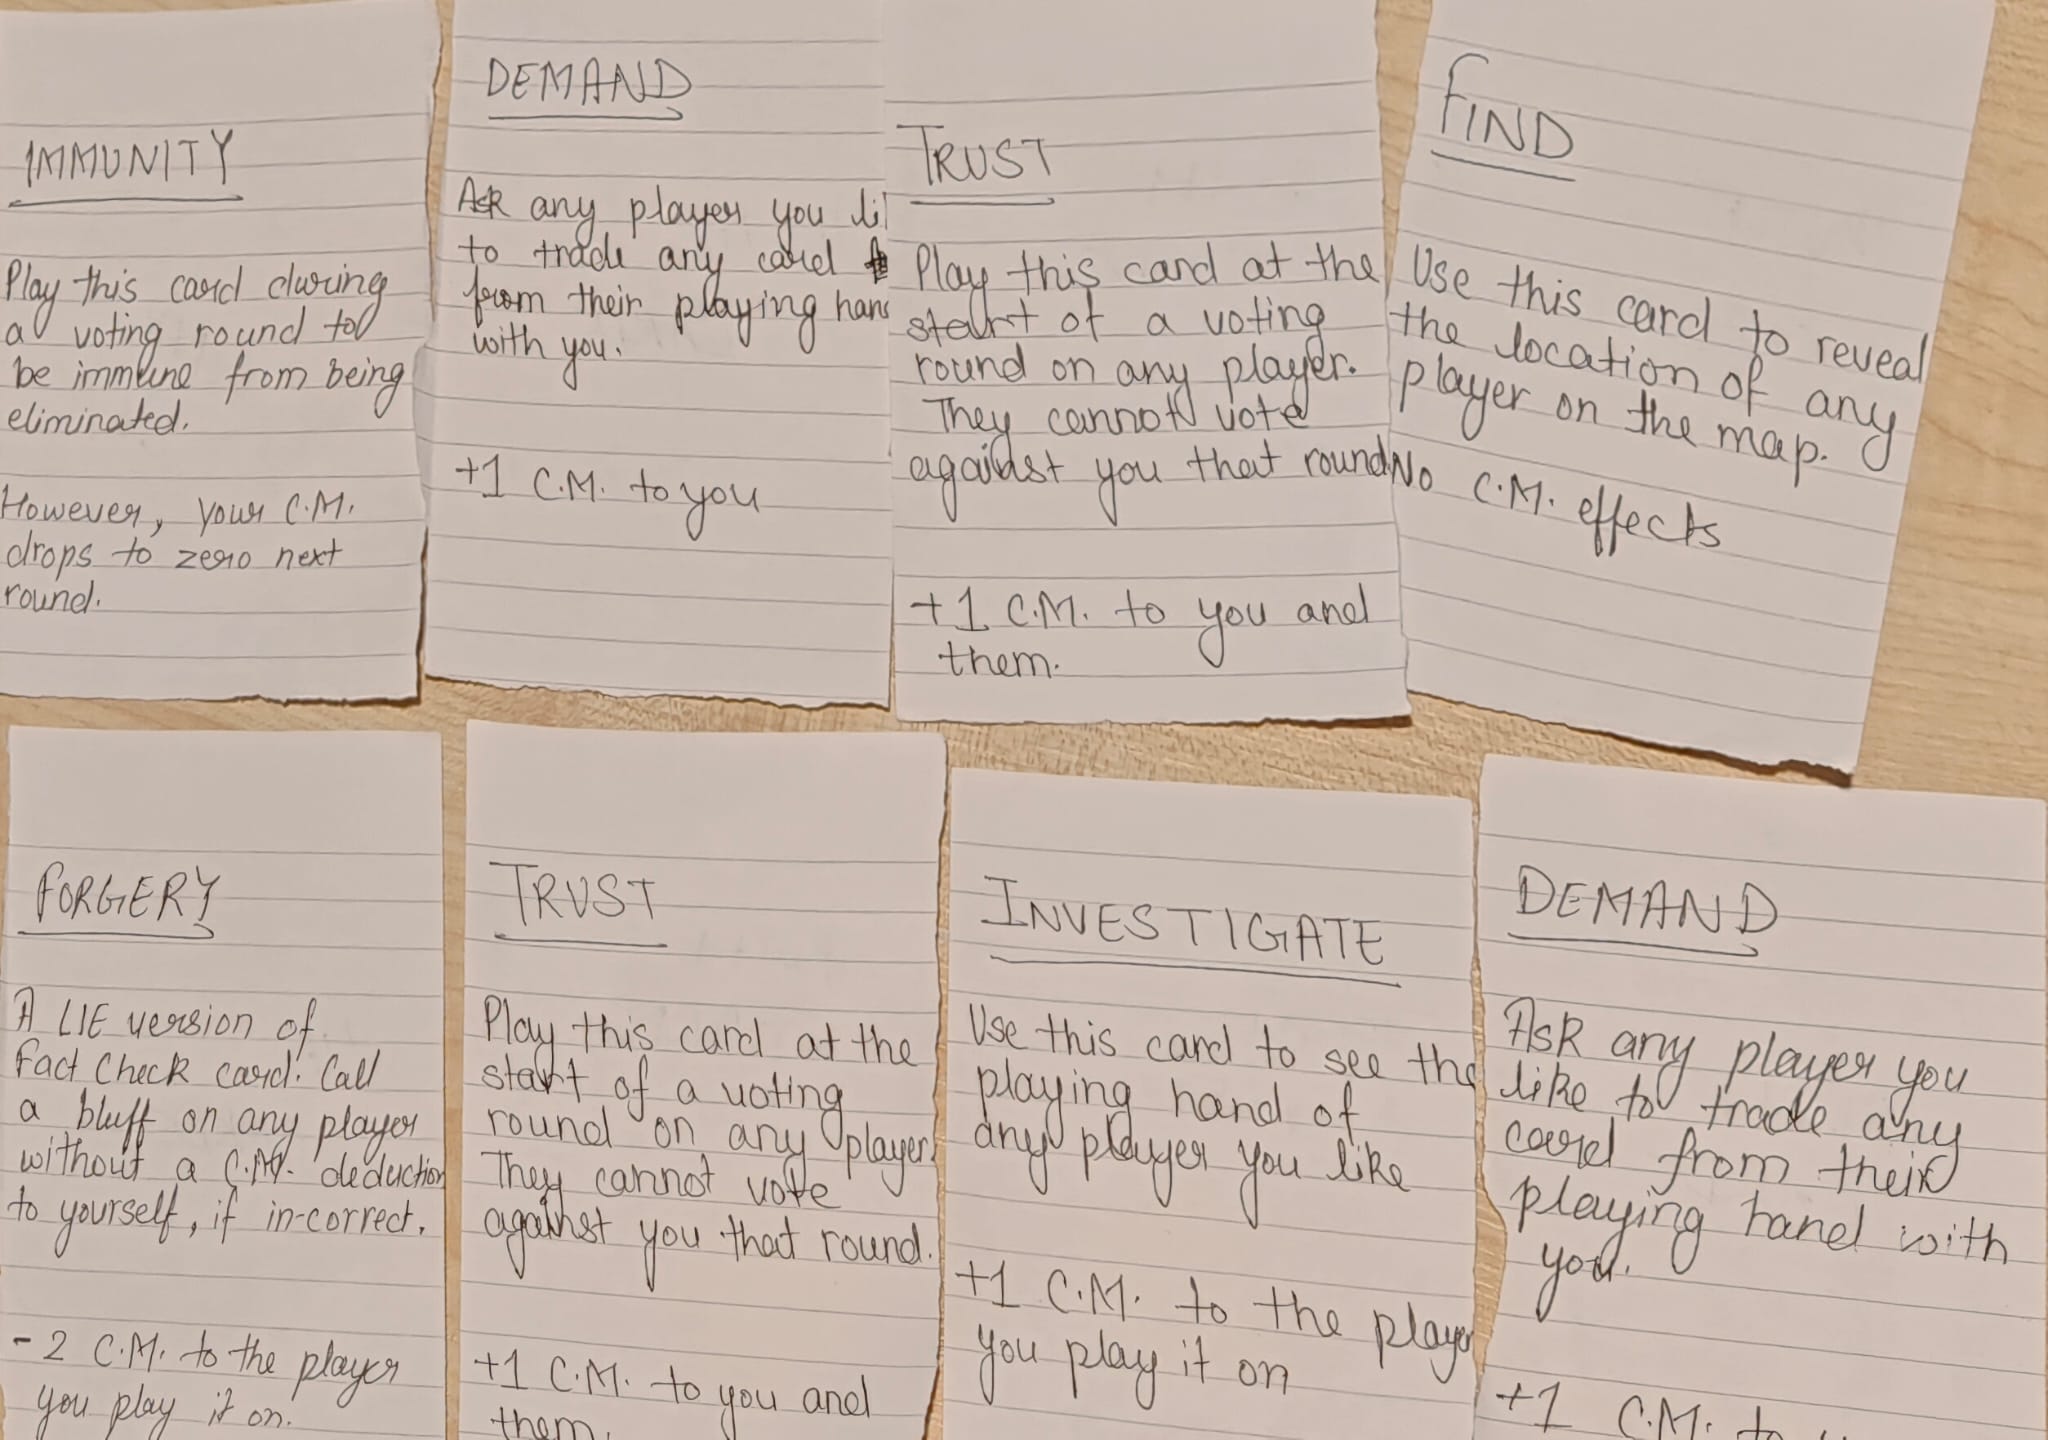 IMMUNITY
Play this card during
a voting round to
be immune from being
eliminated.
However, your C.M.
drops to zero next
round.
DEMAND
Ask any player you
to trade any card
from their playing
with you.
+1 C.M. to you
TRUST
Play this card at the
start of a voting
round on any player.
They cannot vote
against you that round
+1 C.M. to you and
them.
FIND
Use this card to reveal
the location of any
player on the map.
No C.M. effects
FORGERY
A LIE version of
Fact Check card. Call
a bluff on any player
without a C.M. deduction
to yourself, if in-correct.
- 2 C.M. to the player
you play it on.
TRUST
Play this card at the
start of a voting
round on any player.
They cannot vote
against you that round.
+1 C.M. to you and
them.
INVESTIGATE
Use this card to see the
playing hand of
any player you like
+1 C.M. to the player
you play it on
DEMAND
Ask any player you
like to trade any
card from their
playing hand with
you.
+1 C.M. to